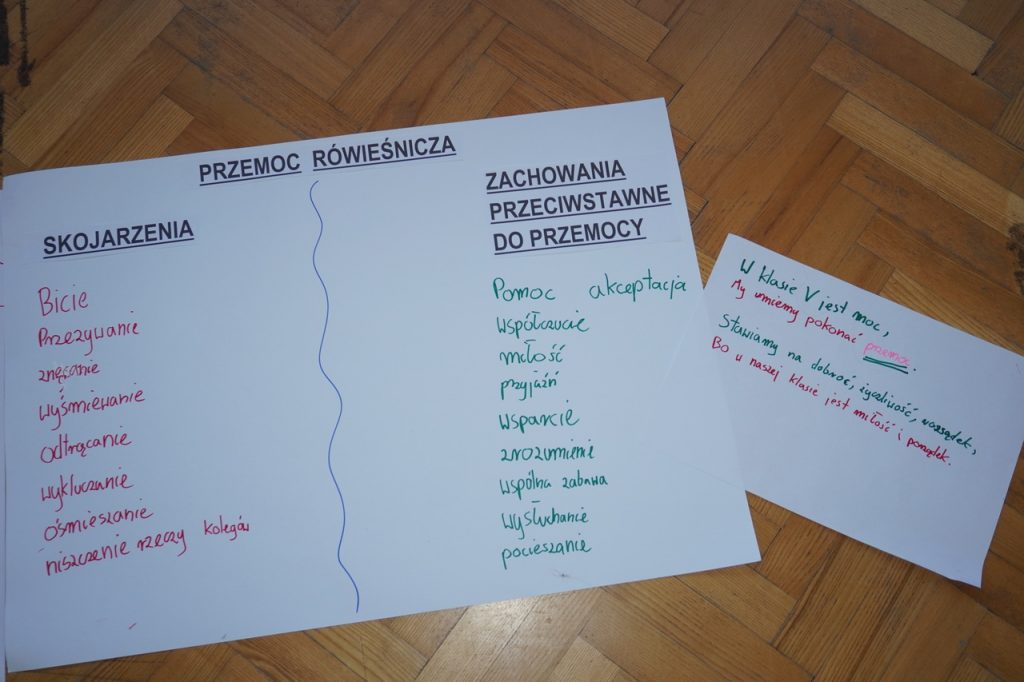 PRZEMOC RÓWIEŚNICZA
SKOJARZENIA
Bicie
Przezywanie
znęcanie
wyśmiewanie
odtrącanie
wykluczanie
ośmieszanie
niszczenie rzeczy kolegów
ZACHOWANIA
PRZECIWSTAWNE
DO PRZEMOCY
Pomoc akceptacja
współczucie
miłość
przyjaźń
wsparcie
zrozumienie
wspólna zabawa
wysłuchanie
pocieszanie
W klasie V jest moc,
My umiemy pokonać przemoc.
Stawiamy na dobroć, życzliwość, rozsądek,
Bo u naszej klasie jest miłość i porządek.